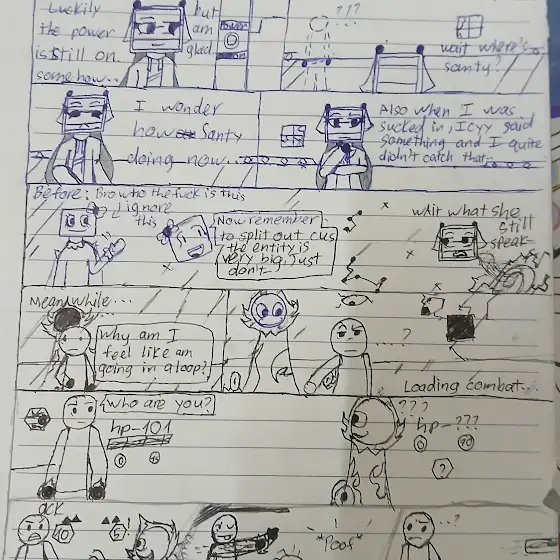 Luckily
the power
is still on.
somehow..
but
am
glad.
POWER
???
wait where's
santy?
I wonder
how Santy
doing now...
Also when I was
sucked in, Icyy said
something and I quite
didn't catch that..
Before: Bro who the fuck is this
ignore
this
Now remember
to split out cus
the entity is
very big, just
don't
wait what she
still
speak
Meanwhile...
Why am I
feel like am
going in a loop?
..?
Loading combat...
who are you?
hp-101
???
hp-???
?
*Poof*
..?